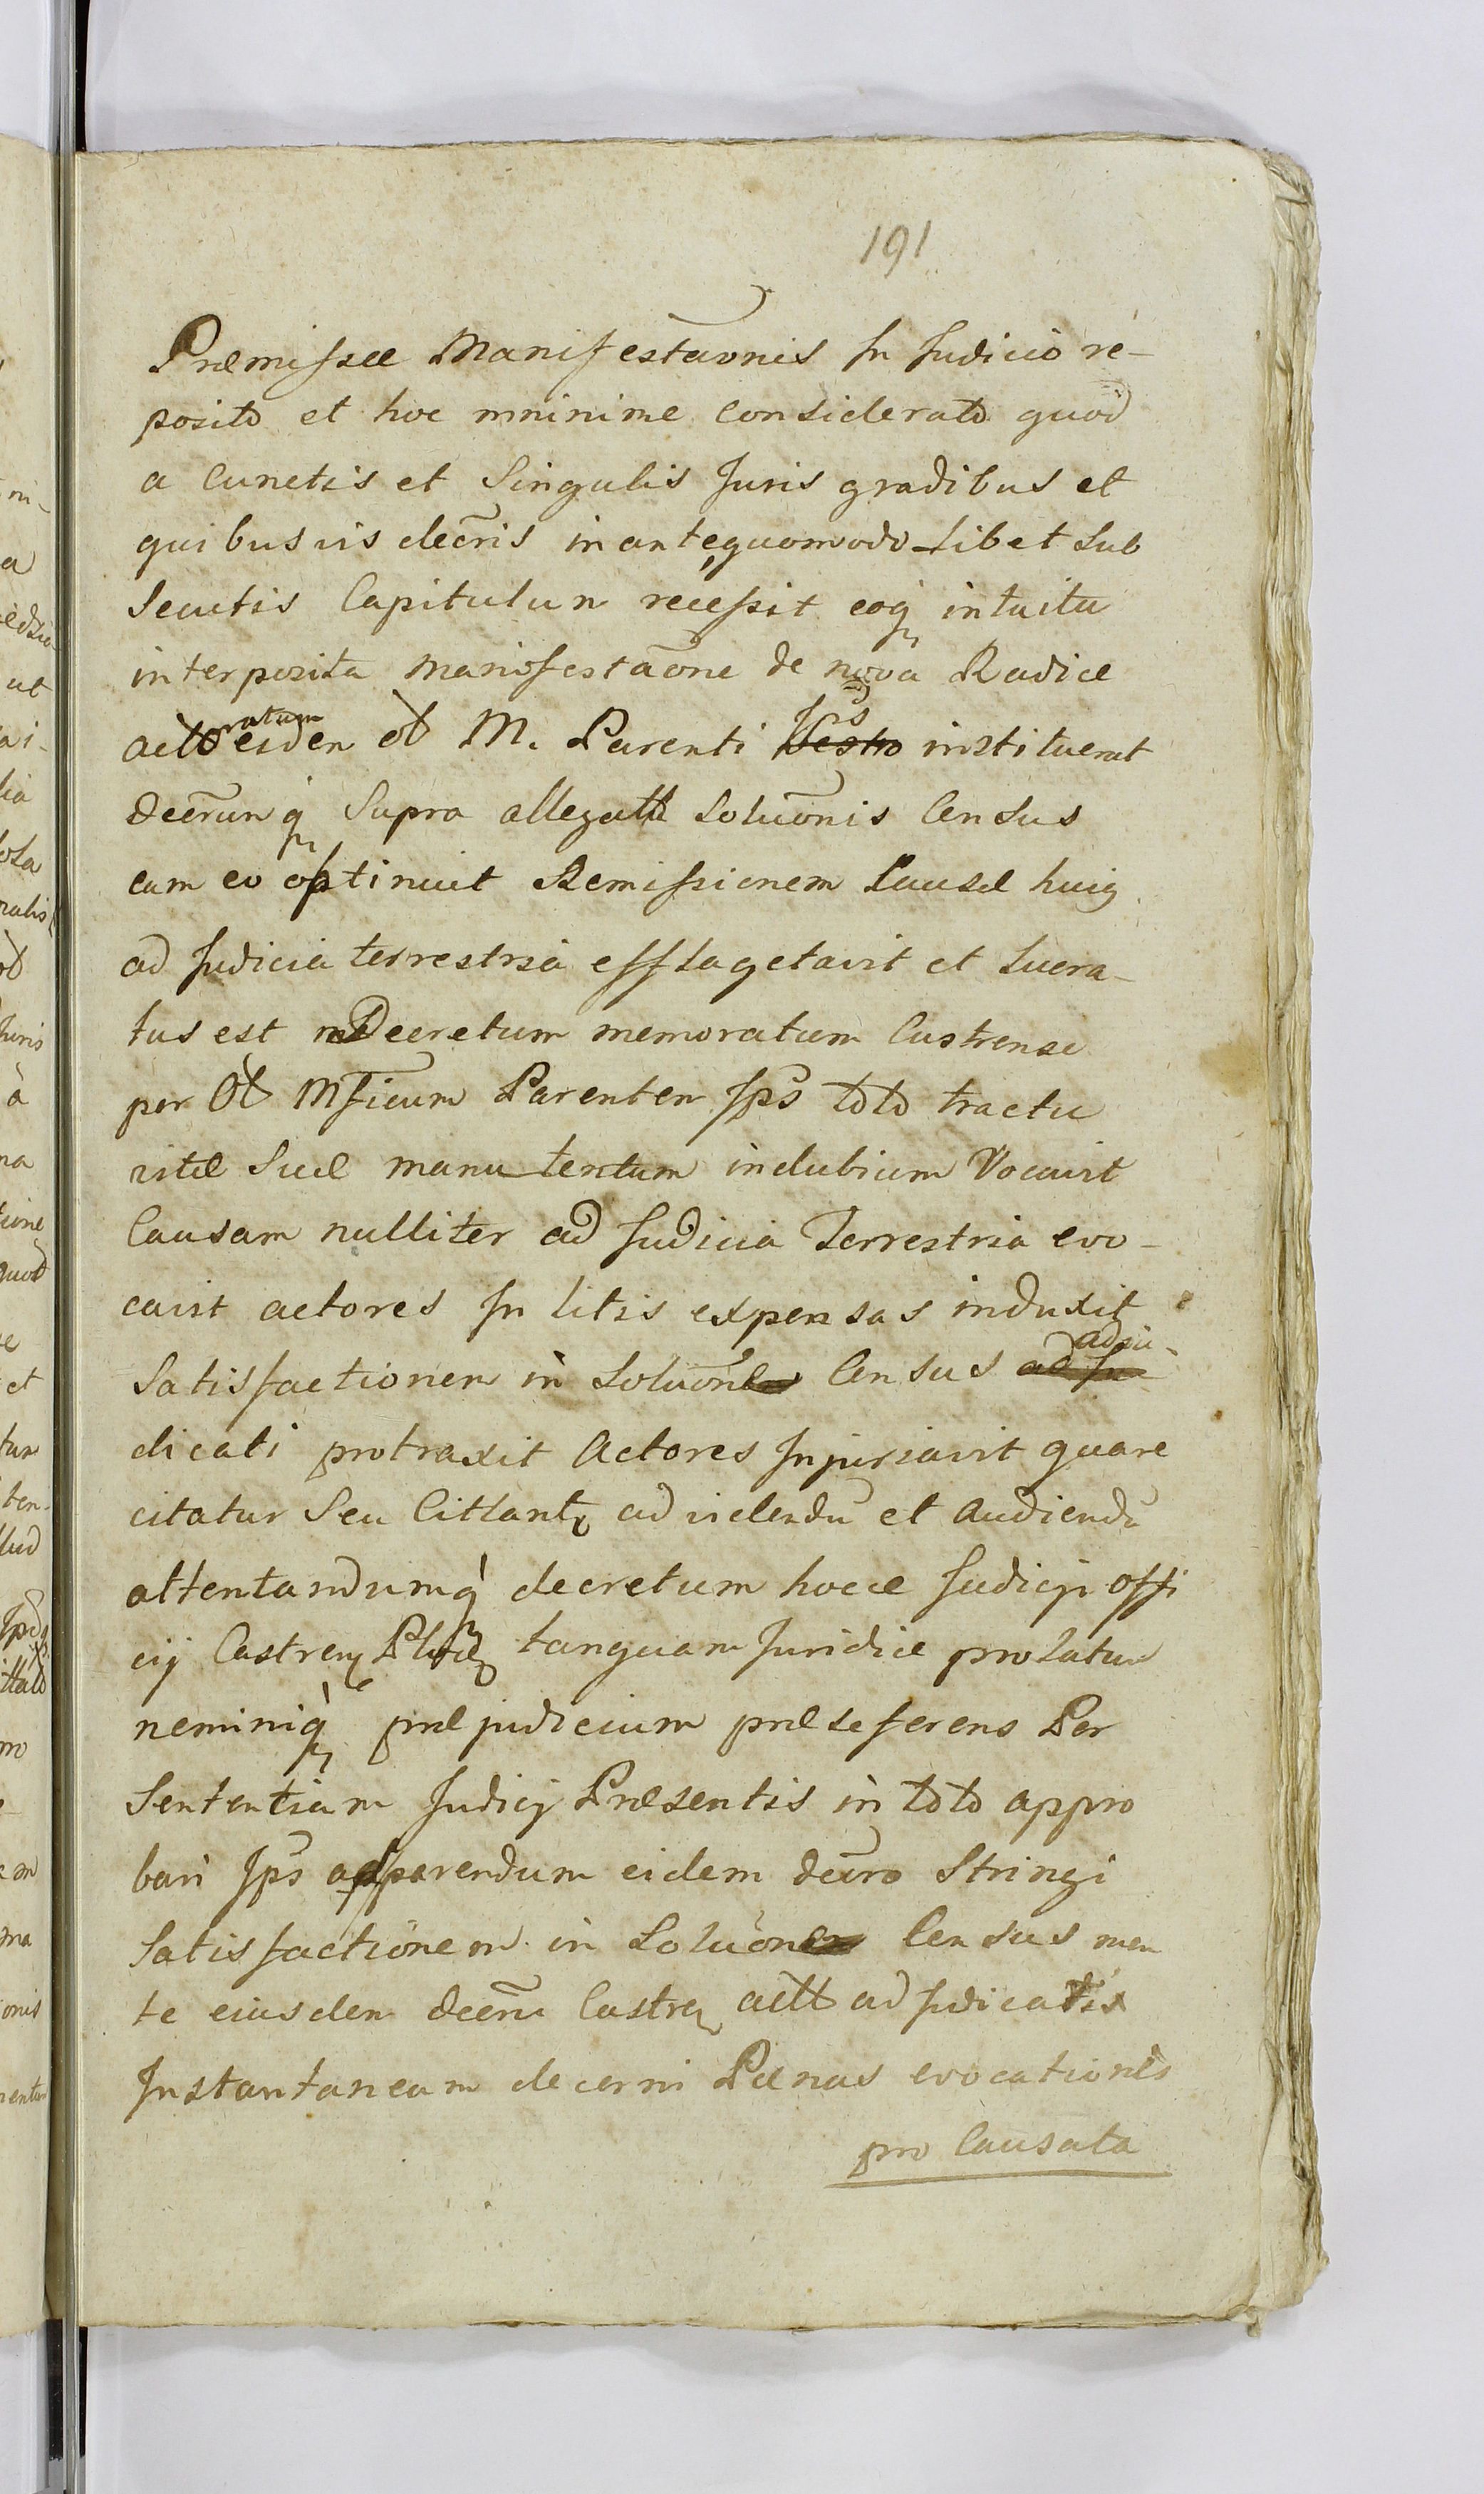 191
Præmissæ Manifestaonis In Judicio re-
posito et hoc mninime Considerato quod
a Cunctis et Singulis Juris gradibus et
quibusvis decris in ante quomodo libet Sub
Secutis Capitulum recessit eoq intuitu
interposita manifestaone de nova Radice
actoratum eiden ol M. Parenti Ips instituerat
decrumq Supra allegatt Soluonis Census
eam eo optinuit Remissionem Causæ huig
ad Judicia terrestria efflagetavit et Lucra-
tus est Decretum memoratum Castrense
per Ol Mficum Parentem Ips toto tractu
vitæ Suæ manu tentum indubium Vocavit
Causam nulliter ad Judicia Terrestria evo-
cavit actores In litis expensas induxit
Satisfactionem in Soluone Census adju-
dicati protraxit Actores Injuriavit quare
citatur Seu Cittant ad videndu et Audiendu
attentandumq decretum hocce Judicij offi
cij Castren tanquam Juridice prolatum
neminiq præjudicium præ se ferens Per
Sententiam Judicij Præsentis in toto appro
bari Ips adparendum eidem decro Stringi
Satisfactionem in Soluone Census men
te eiusdem decri Castren actt adjudicatis
Instantaneam decerni Pænas evocationis
pro Causata